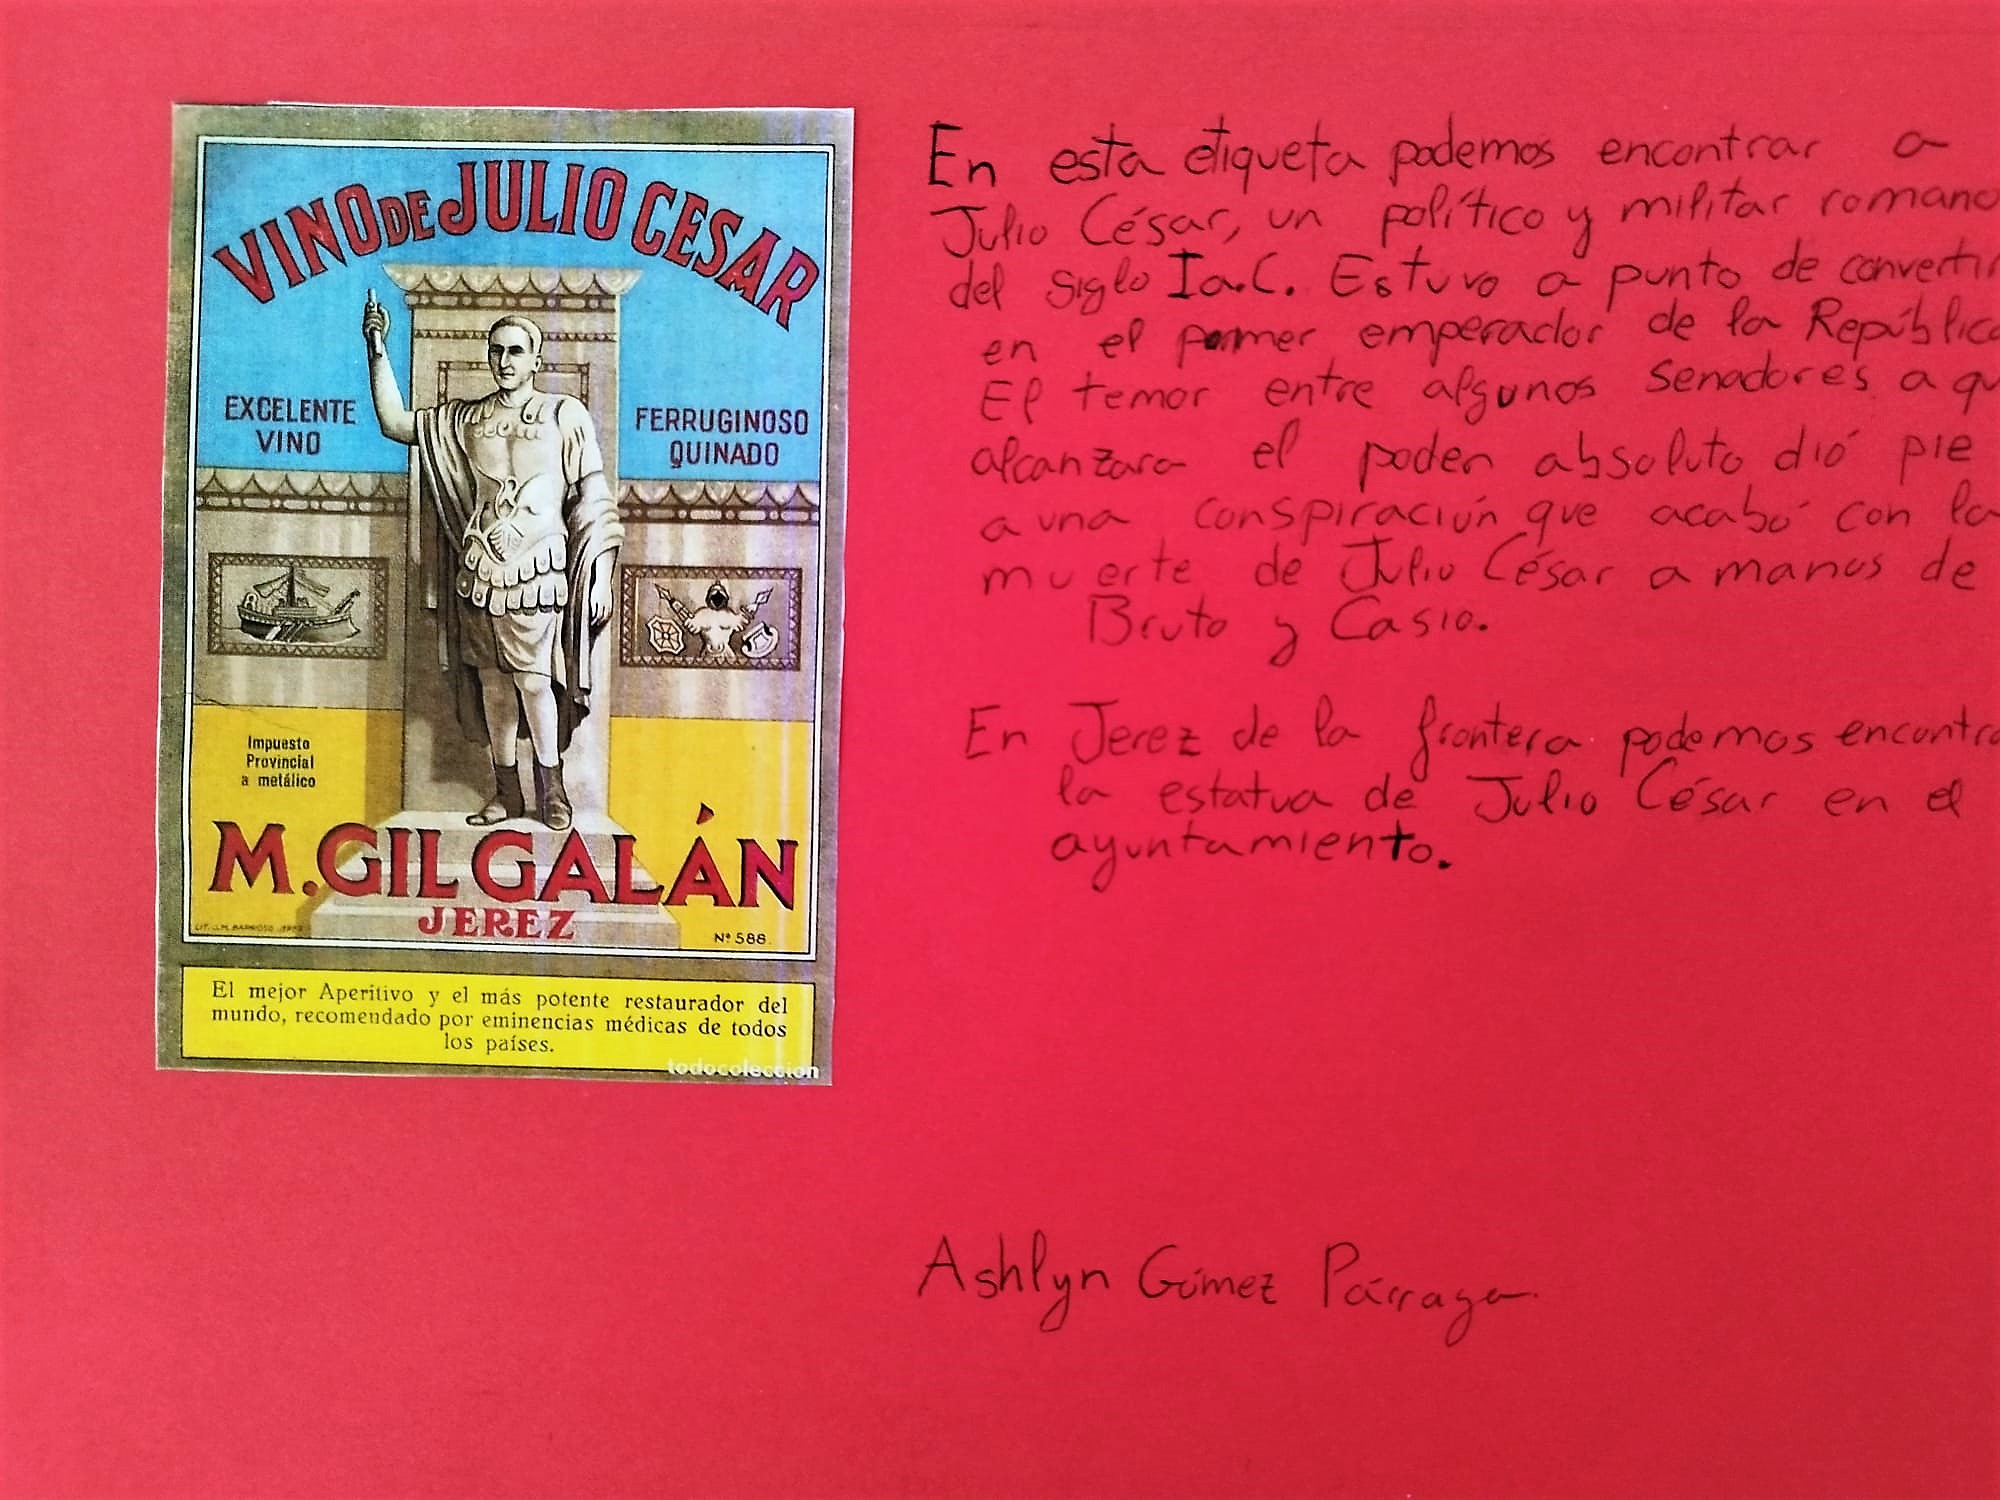 VINO DE JULIO CESAR
EXCELENTE
VINO
FERRUGINOSO
QUINADO
Impuesto
Provincial
a metálico
M. GIL GALÁN
JEREZ
LIT. J.M. BARROSO JEREZ
Nº 588.
El mejor Aperitivo y el más potente restaurador del
mundo, recomendado por eminencias médicas de todos
los países.
todocoleccion
En esta etiqueta podemos encontrar a
Julio César, un político y militar romano
del siglo I a.C. Estuvo a punto de convertir
en el primer emperador de la República
El temor entre algunos senadores a qu
alcanzara el poder absoluto dió pie
a una conspiración que acabó con la
muerte de Julio César a manos de
Bruto y Casio.
En Jerez de la frontera podemos encontra
la estatua de Julio César en el
ayuntamiento.
Ashlyn Gómez Párraga